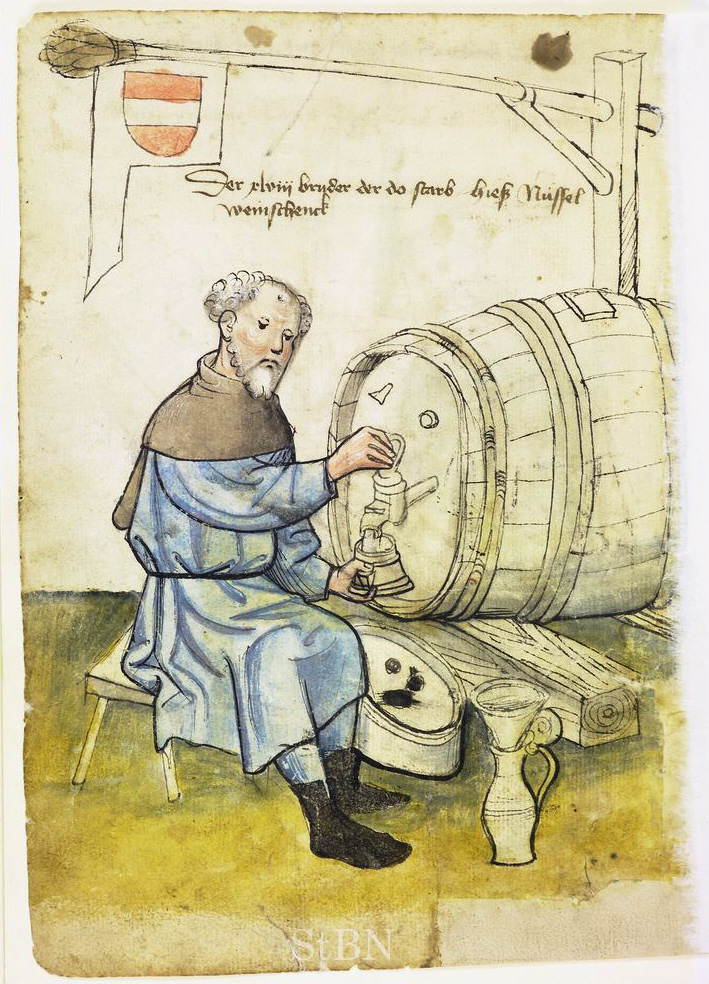 Der xlviii bruder der do starb hieß Nüssel
weinschenck
StBN